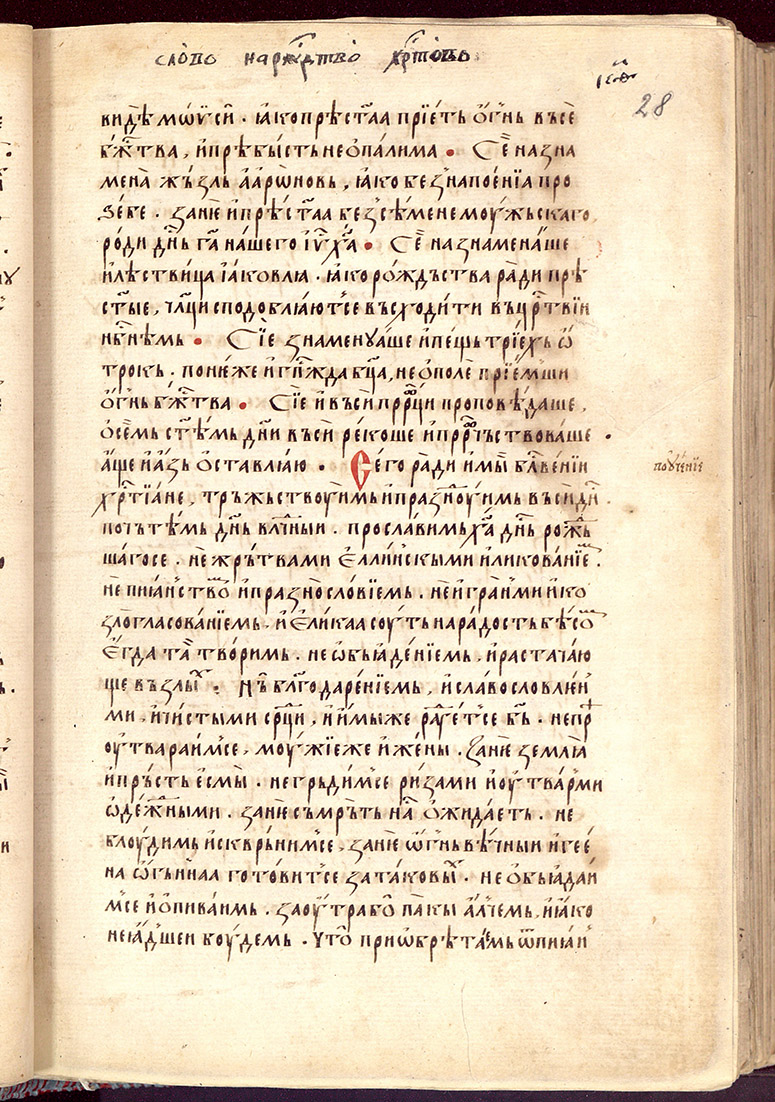 слово нарождтво хр҇тово
28
видѣ мѡѵси . ꙗко прѣст҃аа прїеть ѻгнь въсе
бж҃тва , и прѣбысть неопалима . Се҃ назна
мена жъзль аарѡновь , ꙗко без напоенїа про
зебе . зан҃іе и прѣст҃аа без сѣмене моужьскаго
роди дн҃ь га҃ нашего іу҃ ха҃ . Се҃ назнаменаше
и лѣствица іаковлꙗ . ꙗко рождъства ради прѣ
ст҃ые , чл҃ци сподоблꙗютсе въсходити въ цр҃твїи
нб҃нѣмь . Сїе знаменꙋаше и пещь трїехь ѿ
трокь . понѥже и гп҃жда бц҃а , не ополѣ прїемши
ѻгнь бж҃тва . Сїе и въси прр҃ци проповѣдаше ,
о семь ст҃ѣмь дн҃и въси рекоше и прр҃чьствоваше .
аще и азь оставлꙗю . Сего ради и мы блг҃вении
поученїе
хр҃тїане , тръжьствоуимь и празноуимь въси дн҃ь
почътѣмь дн҃ь влч҃ныи . прославимь ха҃ дн҃ь рожь
шагосе . не жрътвами еллинскыми и ликованїе .
не пиꙗнство и празнословїемь . не играньми и ко
злогласованїемь , и елика соуть на радость бѣсо
егда та҃ творимь . не ѡбыꙗденїемь , и растачаю
ще въ злых . Нь҃ благодаренїемь , и славословлен
ми , и чистыми ср҃ци , и имыже раꙋетсе бь҃ . не пр
оутвараимсе , моужїе же и жены . занѥ землꙗ
и пръсть есмы . не грьдимсе ризами и оутварми
ѡдеждными . занѥ съмрьть на ожидаеть . не
блоудимь и скврьнимсе , занѥ ѡгнь вѣчныи и гее
на ѡгньнаа готовитсе за таковых . не обыꙗдаи
мсе и опиваимь . за оутра бо пакы алчемь , и ꙗко
не ꙗдшеи боудемь . что приѡбрѣтаемь ѿ пиꙗн